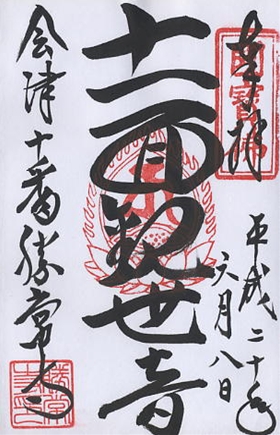 奉拝
平成二十年
六月八日
十一面観世音
会津十番勝常寺